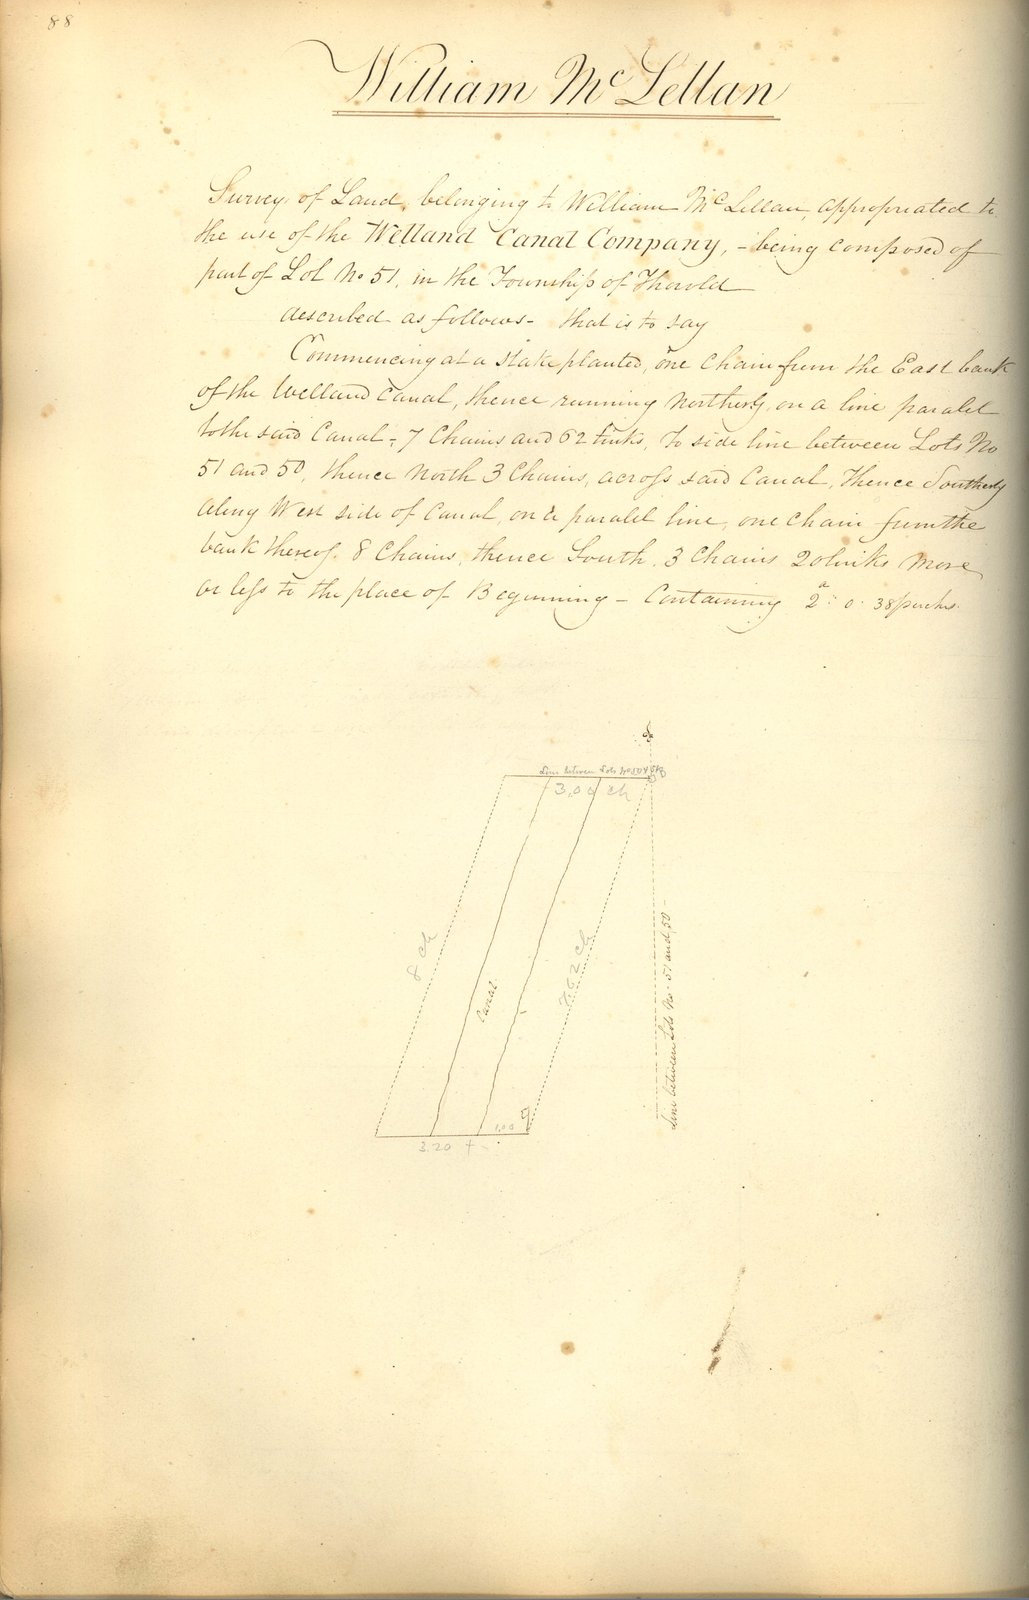 88
William Mc Lellan
Survey of Land, belonging to William McLellan, appropriated to
the use of the Welland Canal Company, - being composed of
part of Lot No 51, in the Township of Thorold
described as follows - that is to say
Commencing at a stake planted, one Chain from the East bank
of the Welland Canal, thence running Northerly, on a line paralel
to the said Canal - 7 Chains and 62 links, to side line between Lots No
51 and 50, thence North 3 Chains, across said Canal, thence Southerly
along West side of Canal, on a paralel line, one Chain from the
bank thereof 8 Chains, thence South, 3 Chains 20 links more
or less to the place of Beginning - Containing 2a : 0 : 38 perches.
Line between Lots No
3.00 ch
8 ch
Canal
7.62 ch
Line between Lots No 51 and 50
1.00
3.20